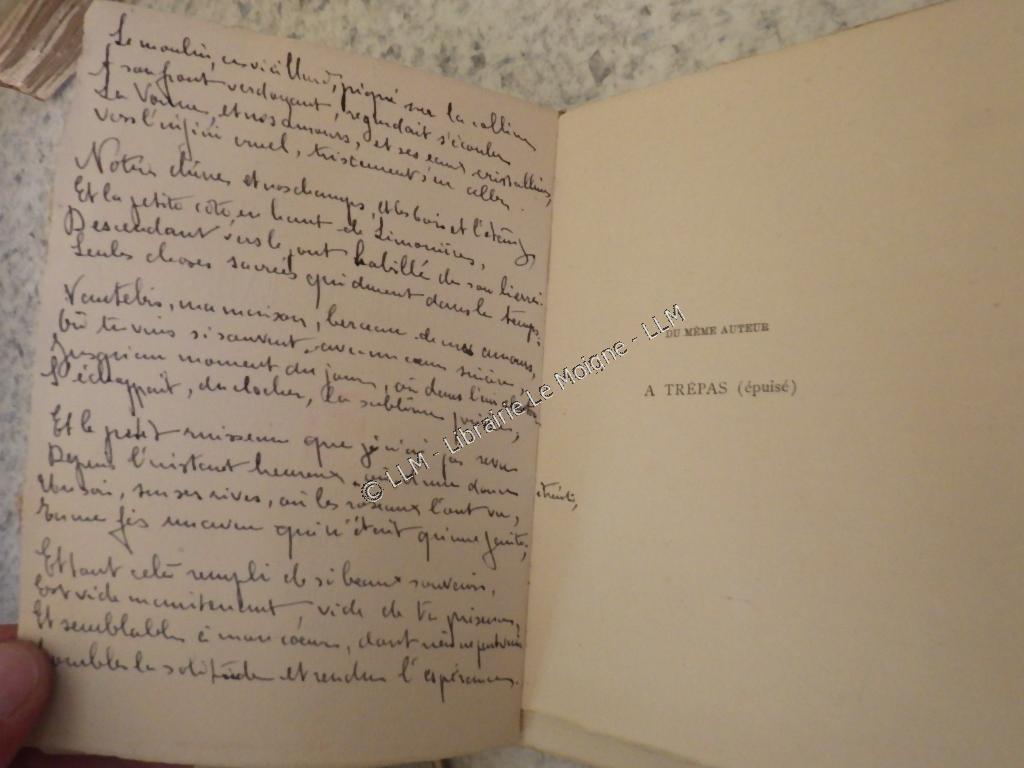 Le moulin, ce vieillard, piqué sur la colline
A son front verdoyant, regardait s'écouler
La Vonne, et nos amours, et ses eaux cristallines,
vers l'infini cruel, tristement s'en aller.
Notre chênes et nos champs, et les bois et l'étang,
Et la petite côte, en haut de Limonières,
Descendant vers le pont habillé de son lierre
Seules choses sacrées qui durent dans le temps.
ma maison, berceau de mes amours,
Où tu vins si souvent avec un cœur sincère,
Jusqu'au moment du jour, où dans l'
S'échappait, du clocher, la sublime prière,
Et le petit ruisseau que je n'ai pas revu
Depuis l'instant heureux
Un soir, sur ses rives, où les roseaux l'ont vu,
Tu me fis un aveu qui n'était qu'une
Et tout cela rempli de si beaux souvenirs,
Est vide maintenant vide de ta présence,
Et semblable à mon cœur, dont rien ne peut
combler la solitude et rendre l'espérance.
DU MÊME AUTEUR
A TRÉPAS (épuisé)
© LLM - Librairie Le Moigne - LLM